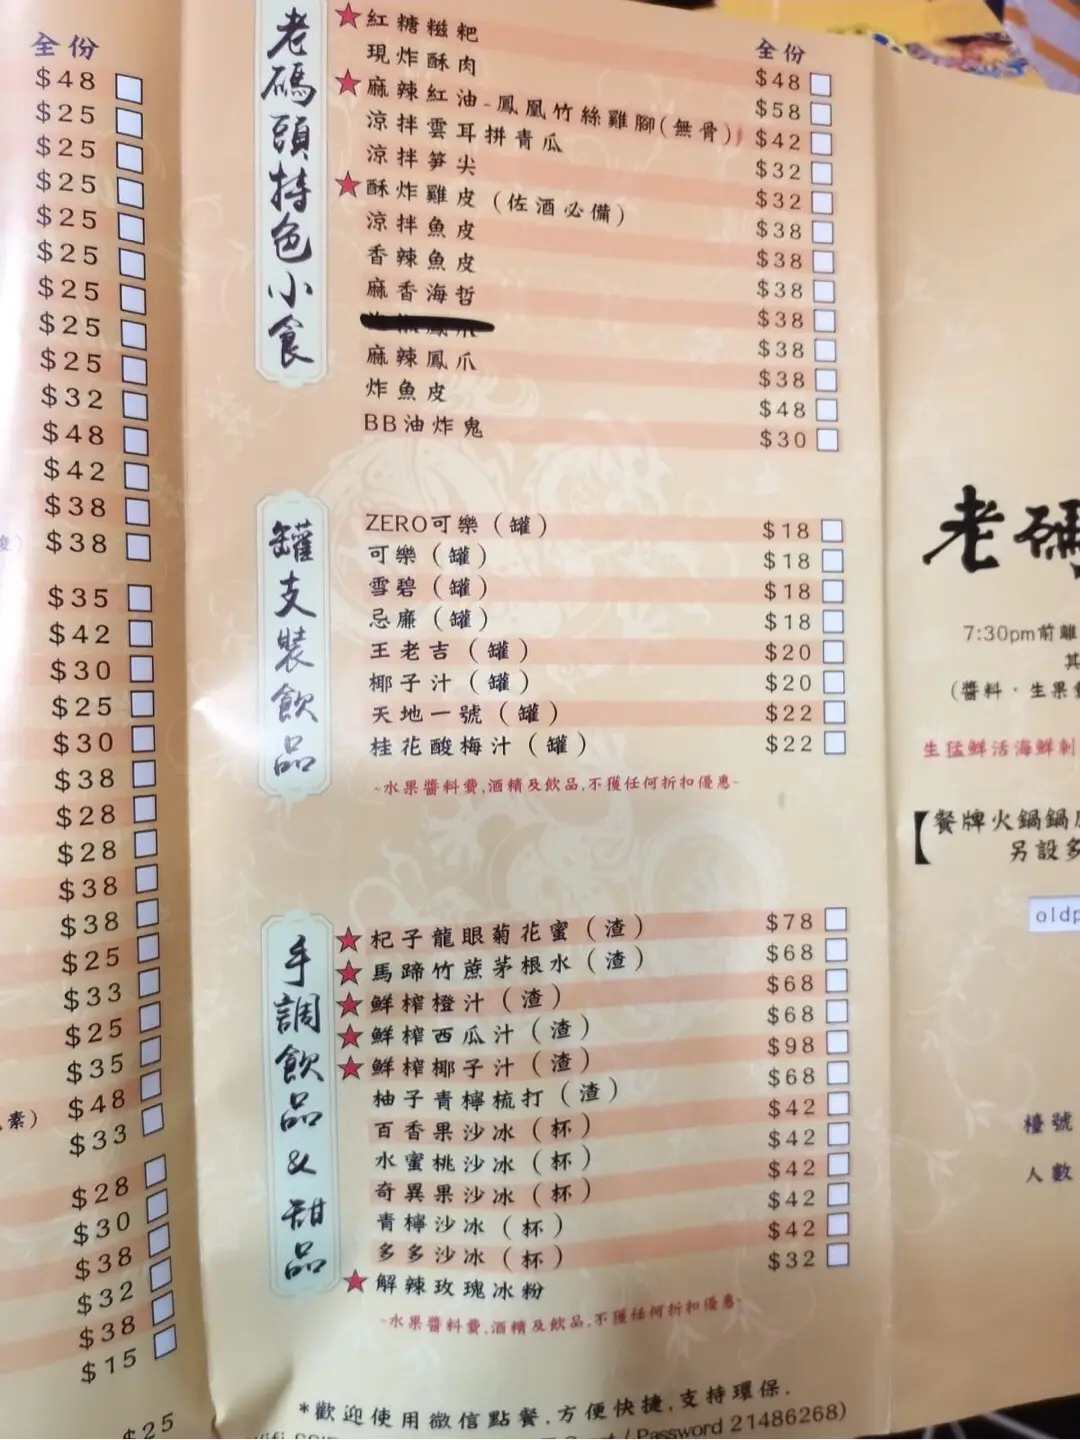 全份
$48
$25
$25
$25
$25
$25
$25
$25
$25
$32
$48
$42
$38
$38
$35
$42
$30
$25
$30
$38
$28
$28
$38
$38
$25
$33
$25
$35
$48
素)
$33
$28
$30
$38
$32
$38
$15
$25
老碼頭特色小食
全份
紅糖糍粑 $48
現炸酥肉 $58
麻辣紅油-鳳凰竹絲雞腳(無骨) $42
涼拌雲耳拼青瓜 $32
涼拌筍尖 $32
酥炸雞皮(佐酒必備) $38
涼拌魚皮 $38
香辣魚皮 $38
麻香海哲 $38
$38
麻辣鳳爪 $38
炸魚皮 $48
BB油炸鬼 $30
罐支裝飲品
ZERO可樂(罐) $18
可樂(罐) $18
雪碧(罐) $18
忌廉(罐) $18
王老吉(罐) $20
椰子汁(罐) $20
天地一號(罐) $22
桂花酸梅汁(罐) $22
~水果醬料費,酒精及飲品,不獲任何折扣優惠~
手調飲品&甜品
杞子龍眼菊花蜜(渣) $78
馬蹄竹蔗茅根水(渣) $68
鮮榨橙汁(渣) $68
鮮榨西瓜汁(渣) $68
鮮榨椰子汁(渣) $98
柚子青檸梳打(渣) $68
百香果沙冰(杯) $42
水蜜桃沙冰(杯) $42
奇異果沙冰(杯) $42
青檸沙冰(杯) $42
多多沙冰(杯) $42
解辣玫瑰冰粉 $32
~水果醬料費,酒精及飲品,不獲任何折扣優惠~
*歡迎使用微信點餐.方便快捷,支持環保.
/ Password 21486268)
老碼
7:30pm前離
其
(醬料·生果
生猛鮮活海鮮刺
【餐牌火鍋鍋
另設多
oldp
檯號
人數